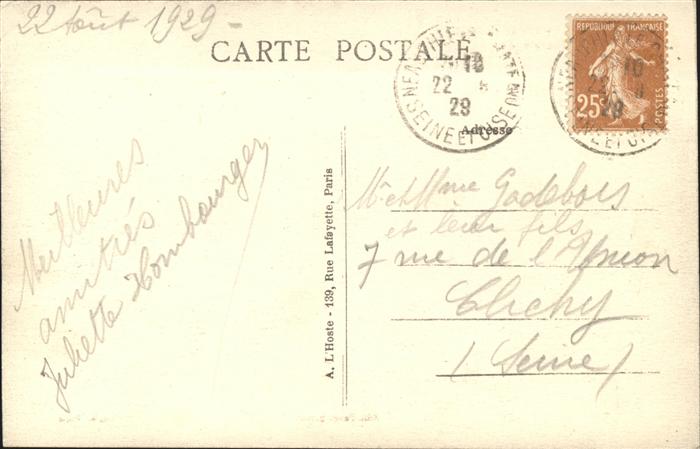 22 Août 1929-
CARTE POSTALE
RÉPUBLIQUE FRANÇAISE
25c
POSTES
22
29
SEINE ET OISE
Adresse
Meilleures
amitiés
Juliette Hombourger
A. L'Hoste - 139, Rue Lafayette, Paris
M et Mme Godebois
et leur fils
7 rue de l'Union
Clichy
(Seine)